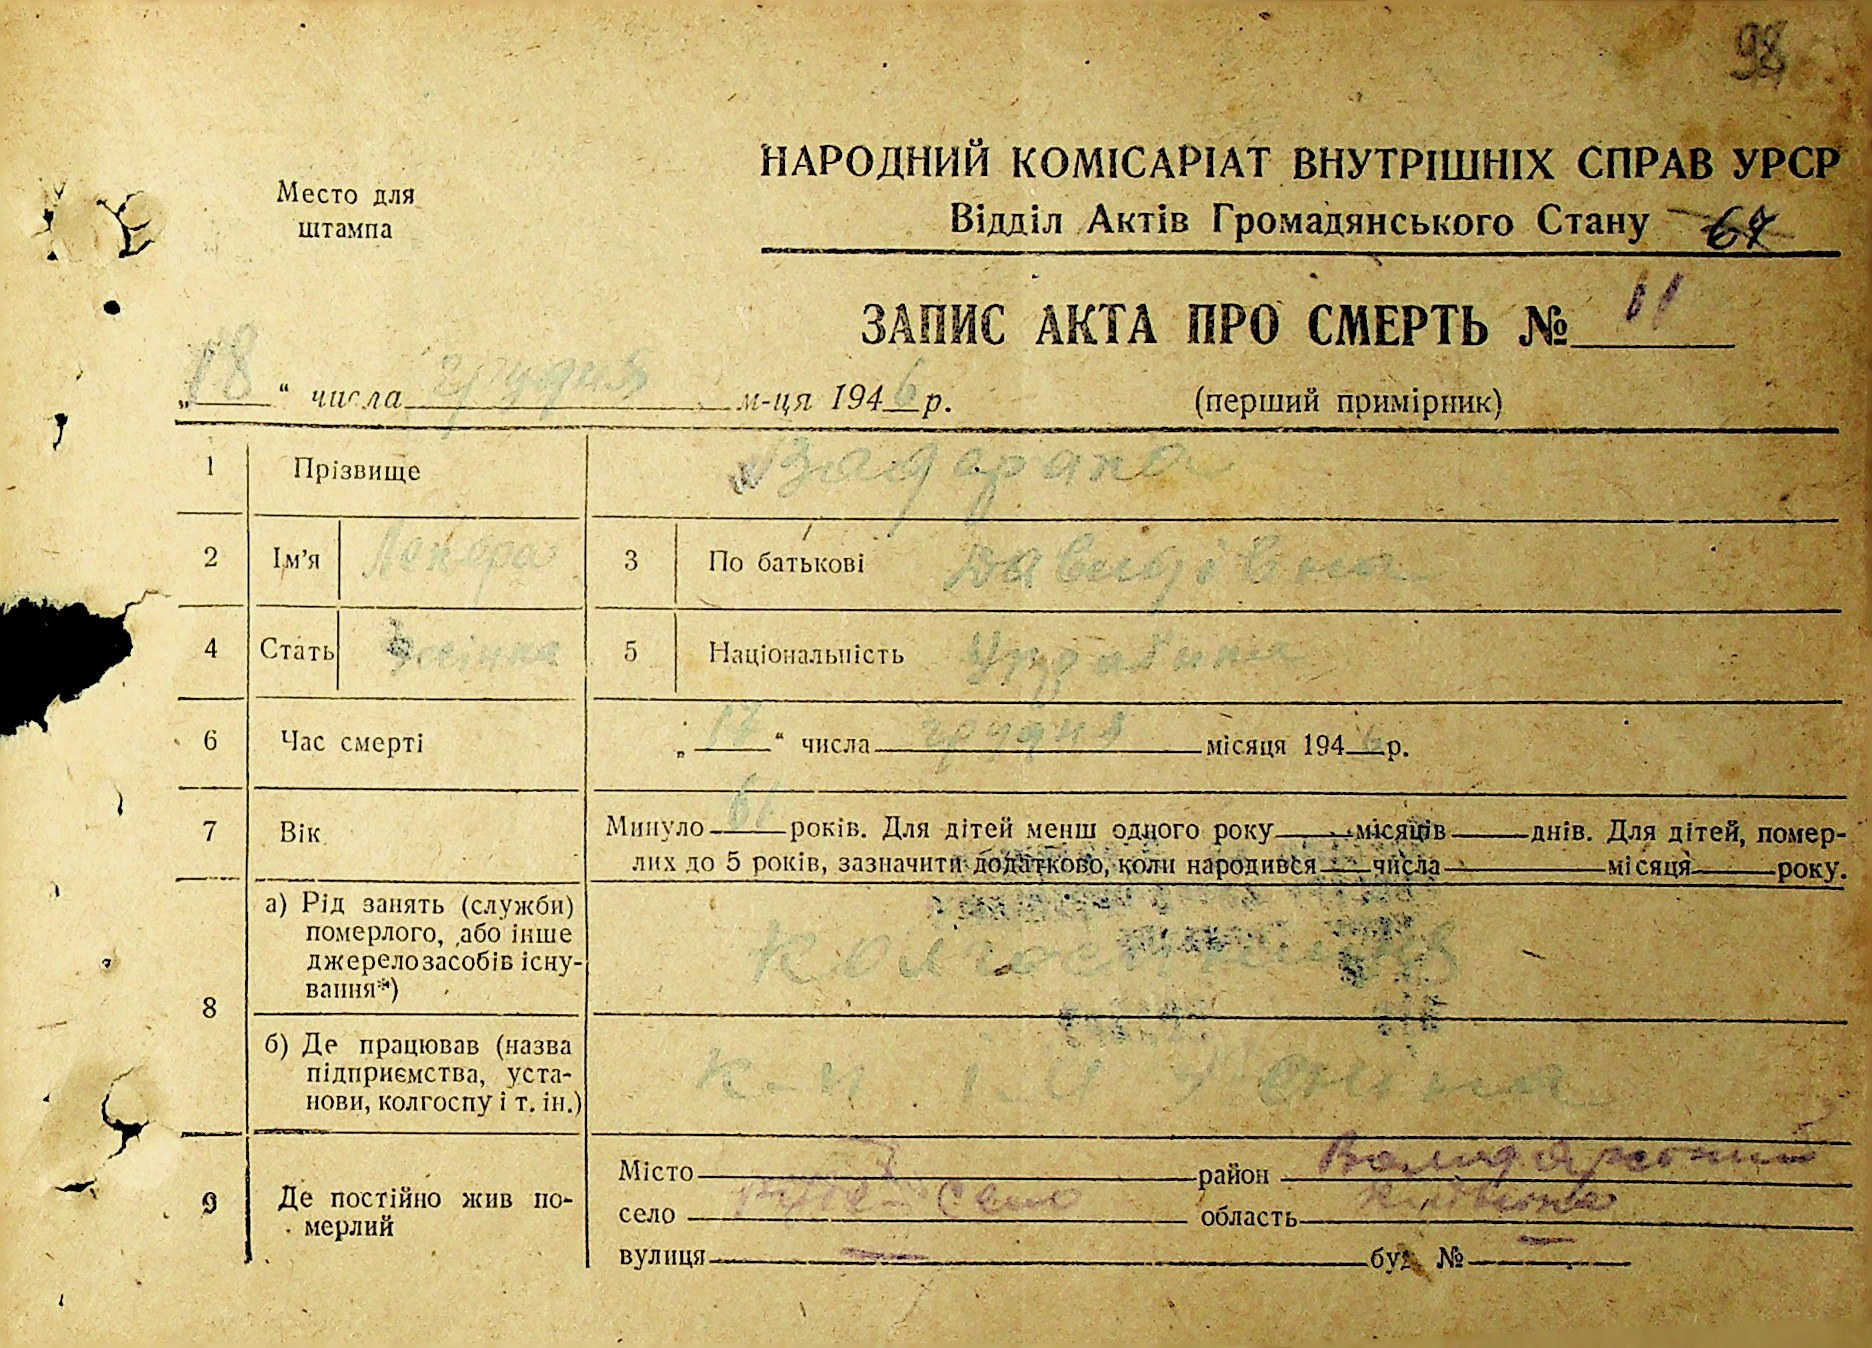 98
Место для
штампа
НАРОДНИЙ КОМІСАРІАТ ВНУТРІШНІХ СПРАВ УРСР
Відділ Актів Громадянського Стану 67
ЗАПИС АКТА ПРО СМЕРТЬ № 11
„18“ числа грудня м-ця 1946 р. (перший примірник)
1 Прізвище
2 Ім'я 3 По батькові Давидівна
4 Стать жінка 5 Національність Українка
6 Час смерті „17“ числа грудня місяця 1946 р.
7 Вік Минуло 61 років. Для дітей менш одного року місяців днів. Для дітей, помер-
лих до 5 років, зазначити додатково, коли народився числа місяця року.
8 а) Рід занять (служби)
померлого, або інше
джерело засобів існу-
вання*)
колгоспник
б) Де працював (назва
підприємства, уста-
нови, колгоспу і т. ін.)
к-п
9 Де постійно жив по-
мерлий
Місто — район Володарський
село Руде-Село область Київська
вулиця — буд. № —